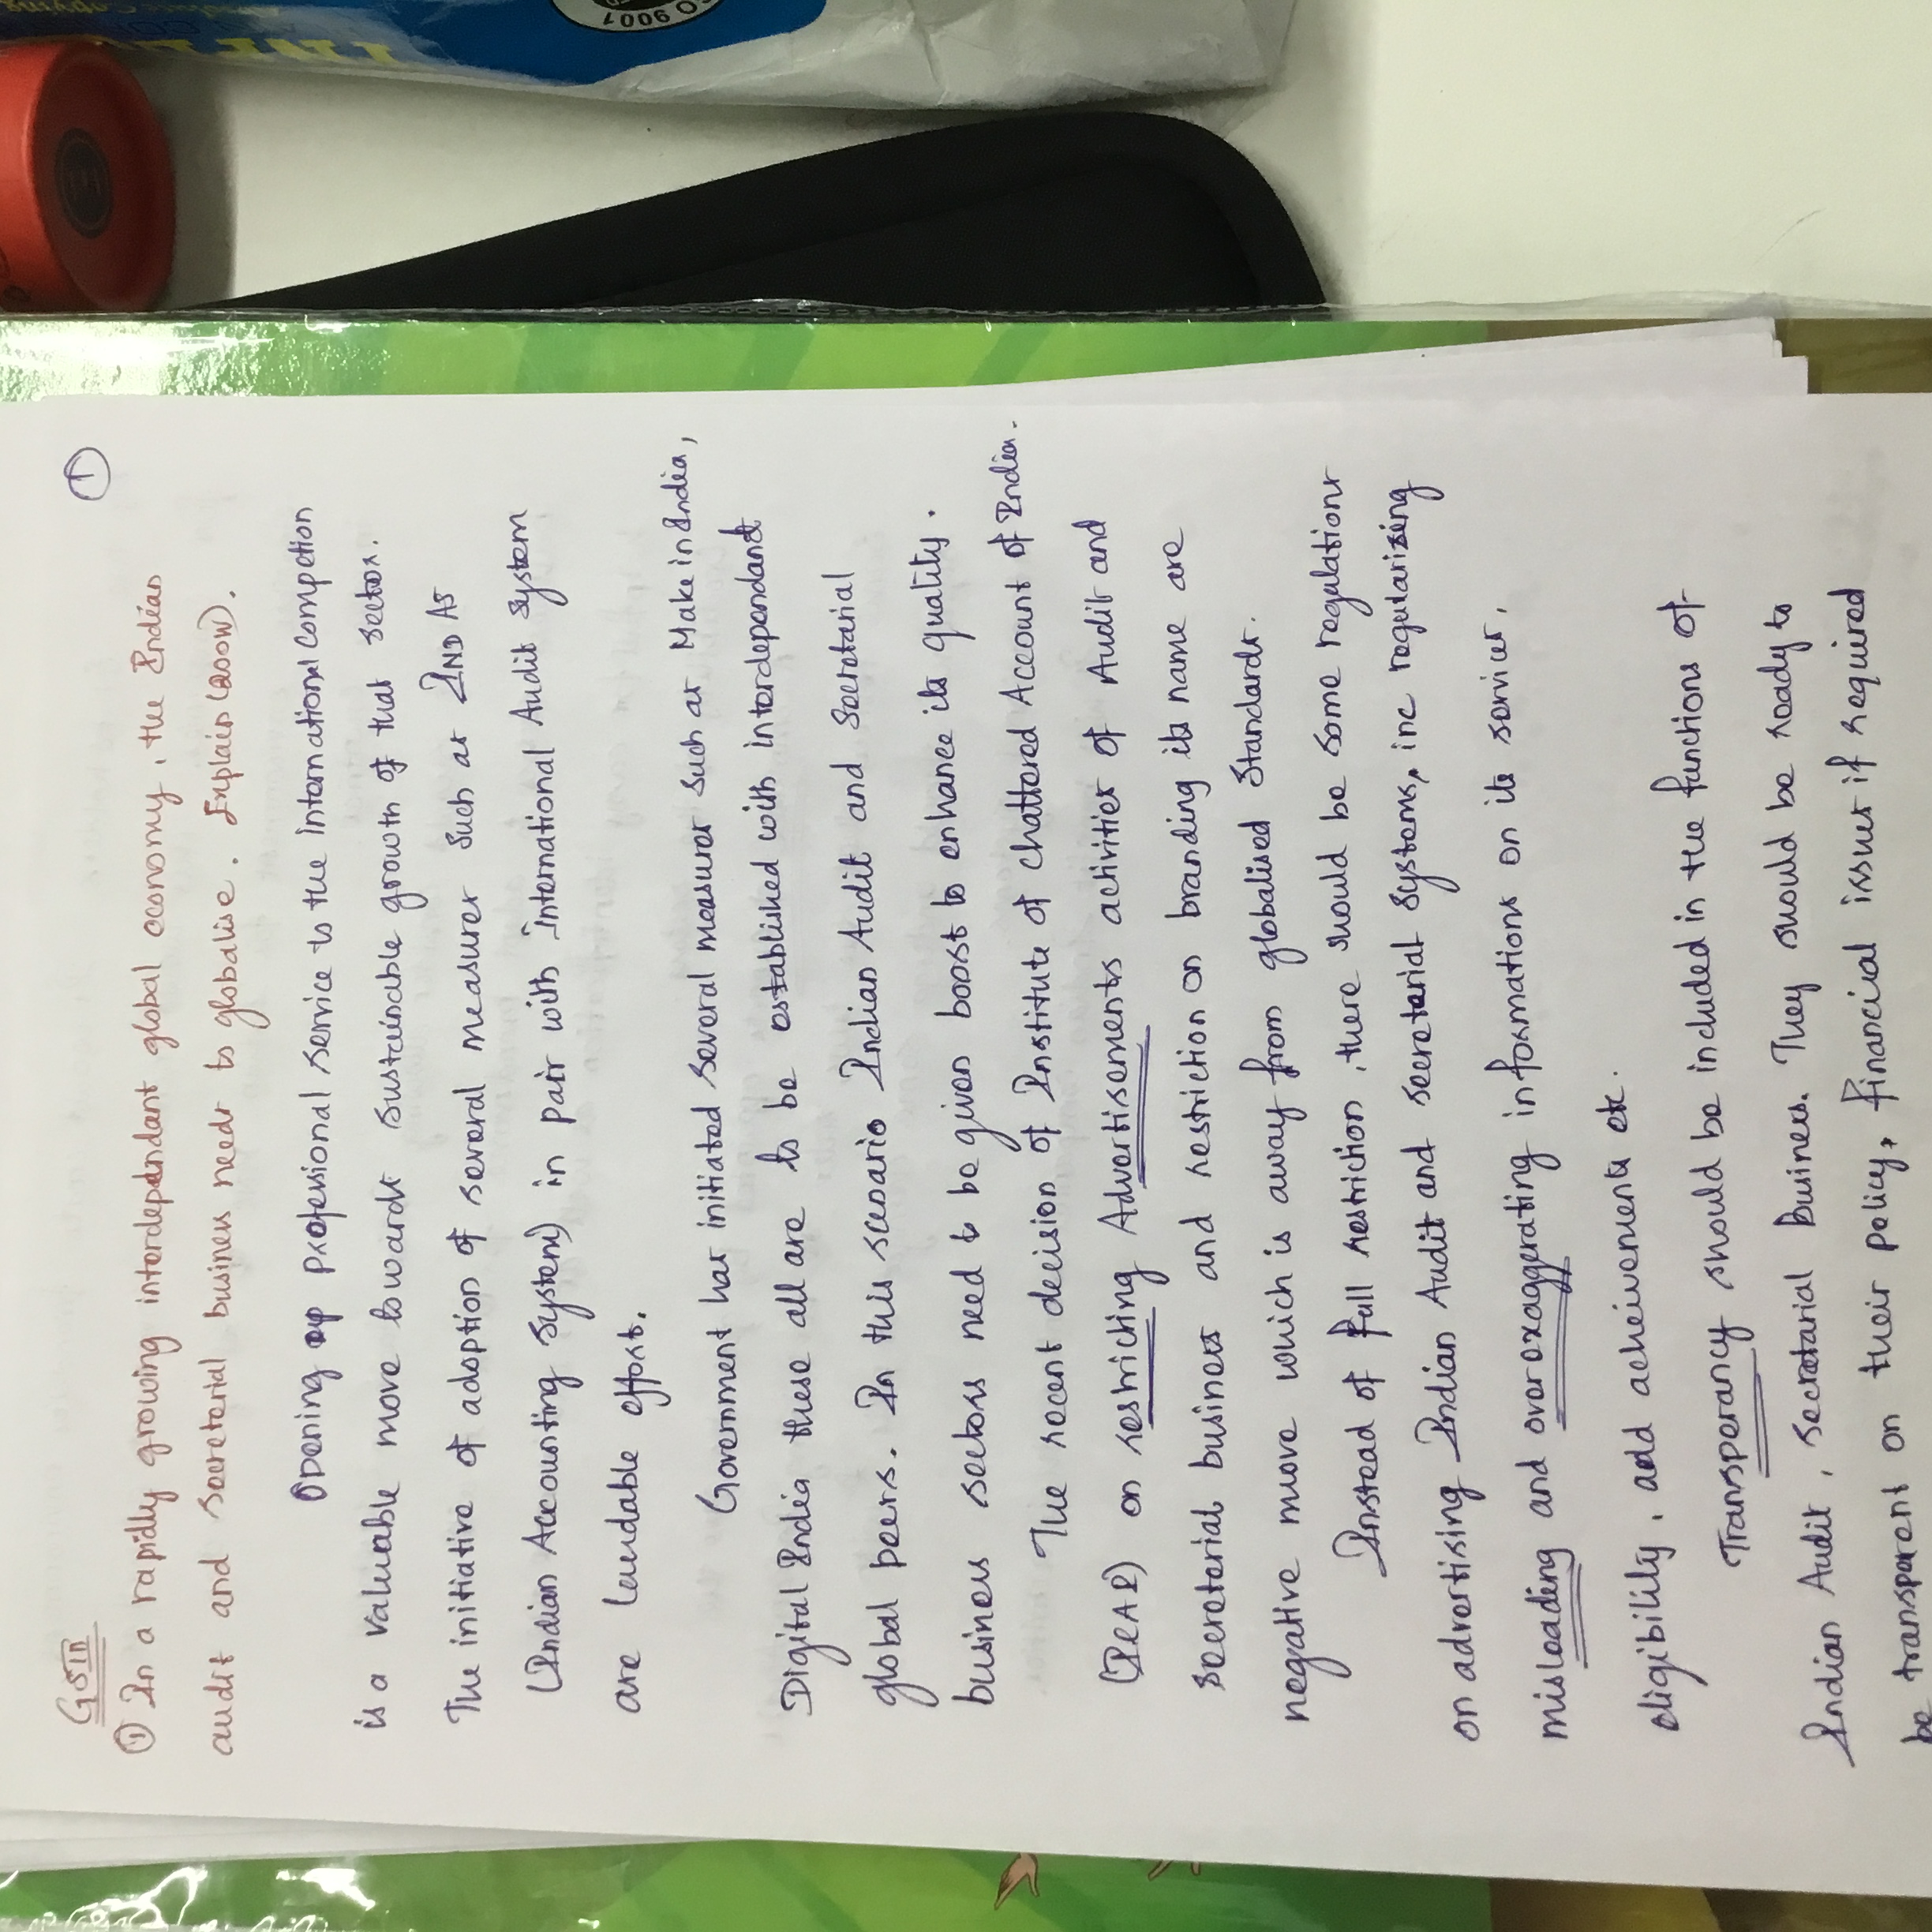 ①
GS III
① In a rapidly growing interdependant global economy, the Indian
audit and secreterial business needs to globalise. Explain (200W).
Opening up professional service to the international competion
is a valuable move towards sustainable growth of that sector.
The initiative of adoption of several measures such as IND AS
(Indian Accounting System) in pair with international Audit System
are laudable effort.
Government has initiated several measures such as Make in India,
Digital India these all are to be established with interdependant
global peers. In this scenario Indian Audit and Secretarial
business sectors need to be given boost to enhance its quality.
The recent decision of Institute of chattered Account of India.
(ICAI) on restricting Advertisements activities of Audit and
secreterial business and restriction on branding its name are
negative move which is away from globalised Standards.
Instead of full restriction, there should be some regulations
on advertising Indian Audit and secreterial systems, inc regularizing
misleading and over exaggerating informations on its services,
eligibility, add acheivements etc.
Transperancy should be included in the functions of
Indian Audit, secretarial business. They should be ready to
be transparent on their policy, financial issues if required
ISO 9001